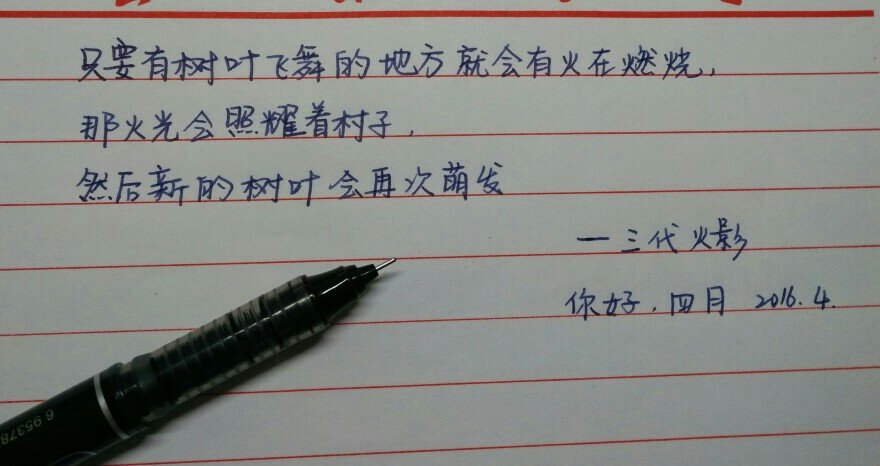 只要有树叶飞舞的地方就会有火在燃烧，
那火光会照耀着村子，
然后新的树叶会再次萌发
一三代火影
你好，四月 2016.4.
6 95378